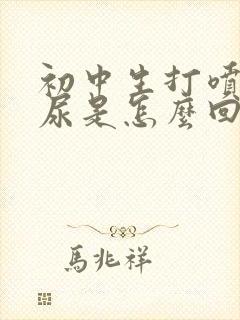 初中生打噴
尿是怎麼回
馬兆祥